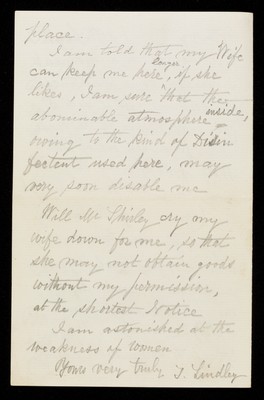 place.
I am told that my Wife
can keep me here longer, if she
likes, I am sure that the
abominable atmosphere inside,
owing to the kind of Disin
fectent used here, may
very soon disable me
Will Mr Shirley cry my
wife down for me, so that
she may not obtain goods
without my permission,
at the shortest Notice
I am astonished at the
weakness of women
Yours very truly T. Lindley